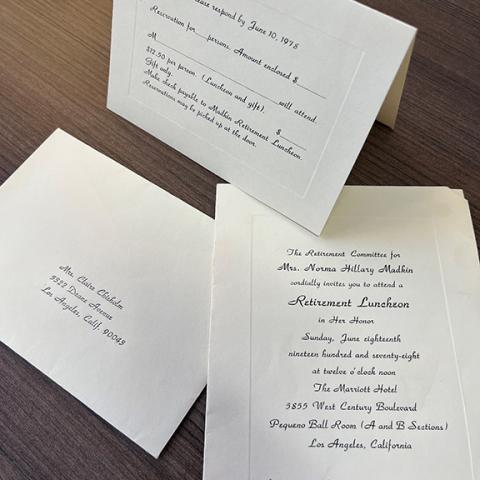 ease respond by June 10, 1978
Reservation for___persons. Amount enclosed $______
M________________will attend.
$12.50 per person (Luncheon and gift).
Gift only. $______
Make check payable to Madkin Retirement Luncheon.
Reservations may be picked up at the door.
Mrs. Claire Chisholm
Avenue
Los Angeles, Calif. 90043
The Retirement Committee for
Mrs. Norma Hillary Madkin
cordially invites you to attend a
Retirement Luncheon
in Her Honor
Sunday, June eighteenth
nineteen hundred and seventy-eight
at twelve o'clock noon
The Marriott Hotel
5855 West Century Boulevard
Pequeno Ball Room (A and B Sections)
Los Angeles, California